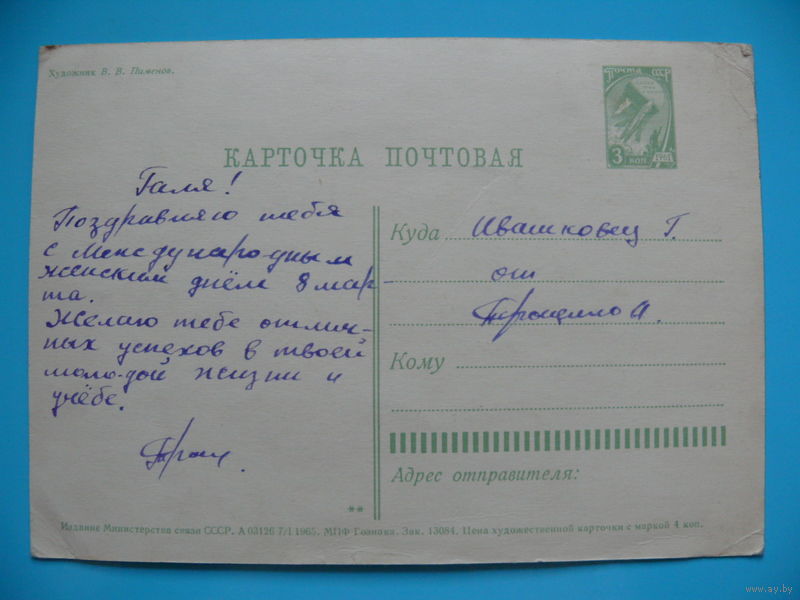 Художник В. В. Пименов.
ПОЧТА СССР
3 КОП
КАРТОЧКА ПОЧТОВАЯ
Галя!
Поздравляю тебя
с Международным
женским днём 8 мар-
та.
Желаю тебе отлич-
ных успехов в твоей
молодой жизни и
учёбе.
Куда Ивашковец Г.
от
Кому
Адрес отправителя:
**
Издание Министерства связи СССР. А 03126 7/I 1965. МПФ Гознака. Зак. 13084. Цена художественной карточки с маркой 4 коп.
www.ay.by